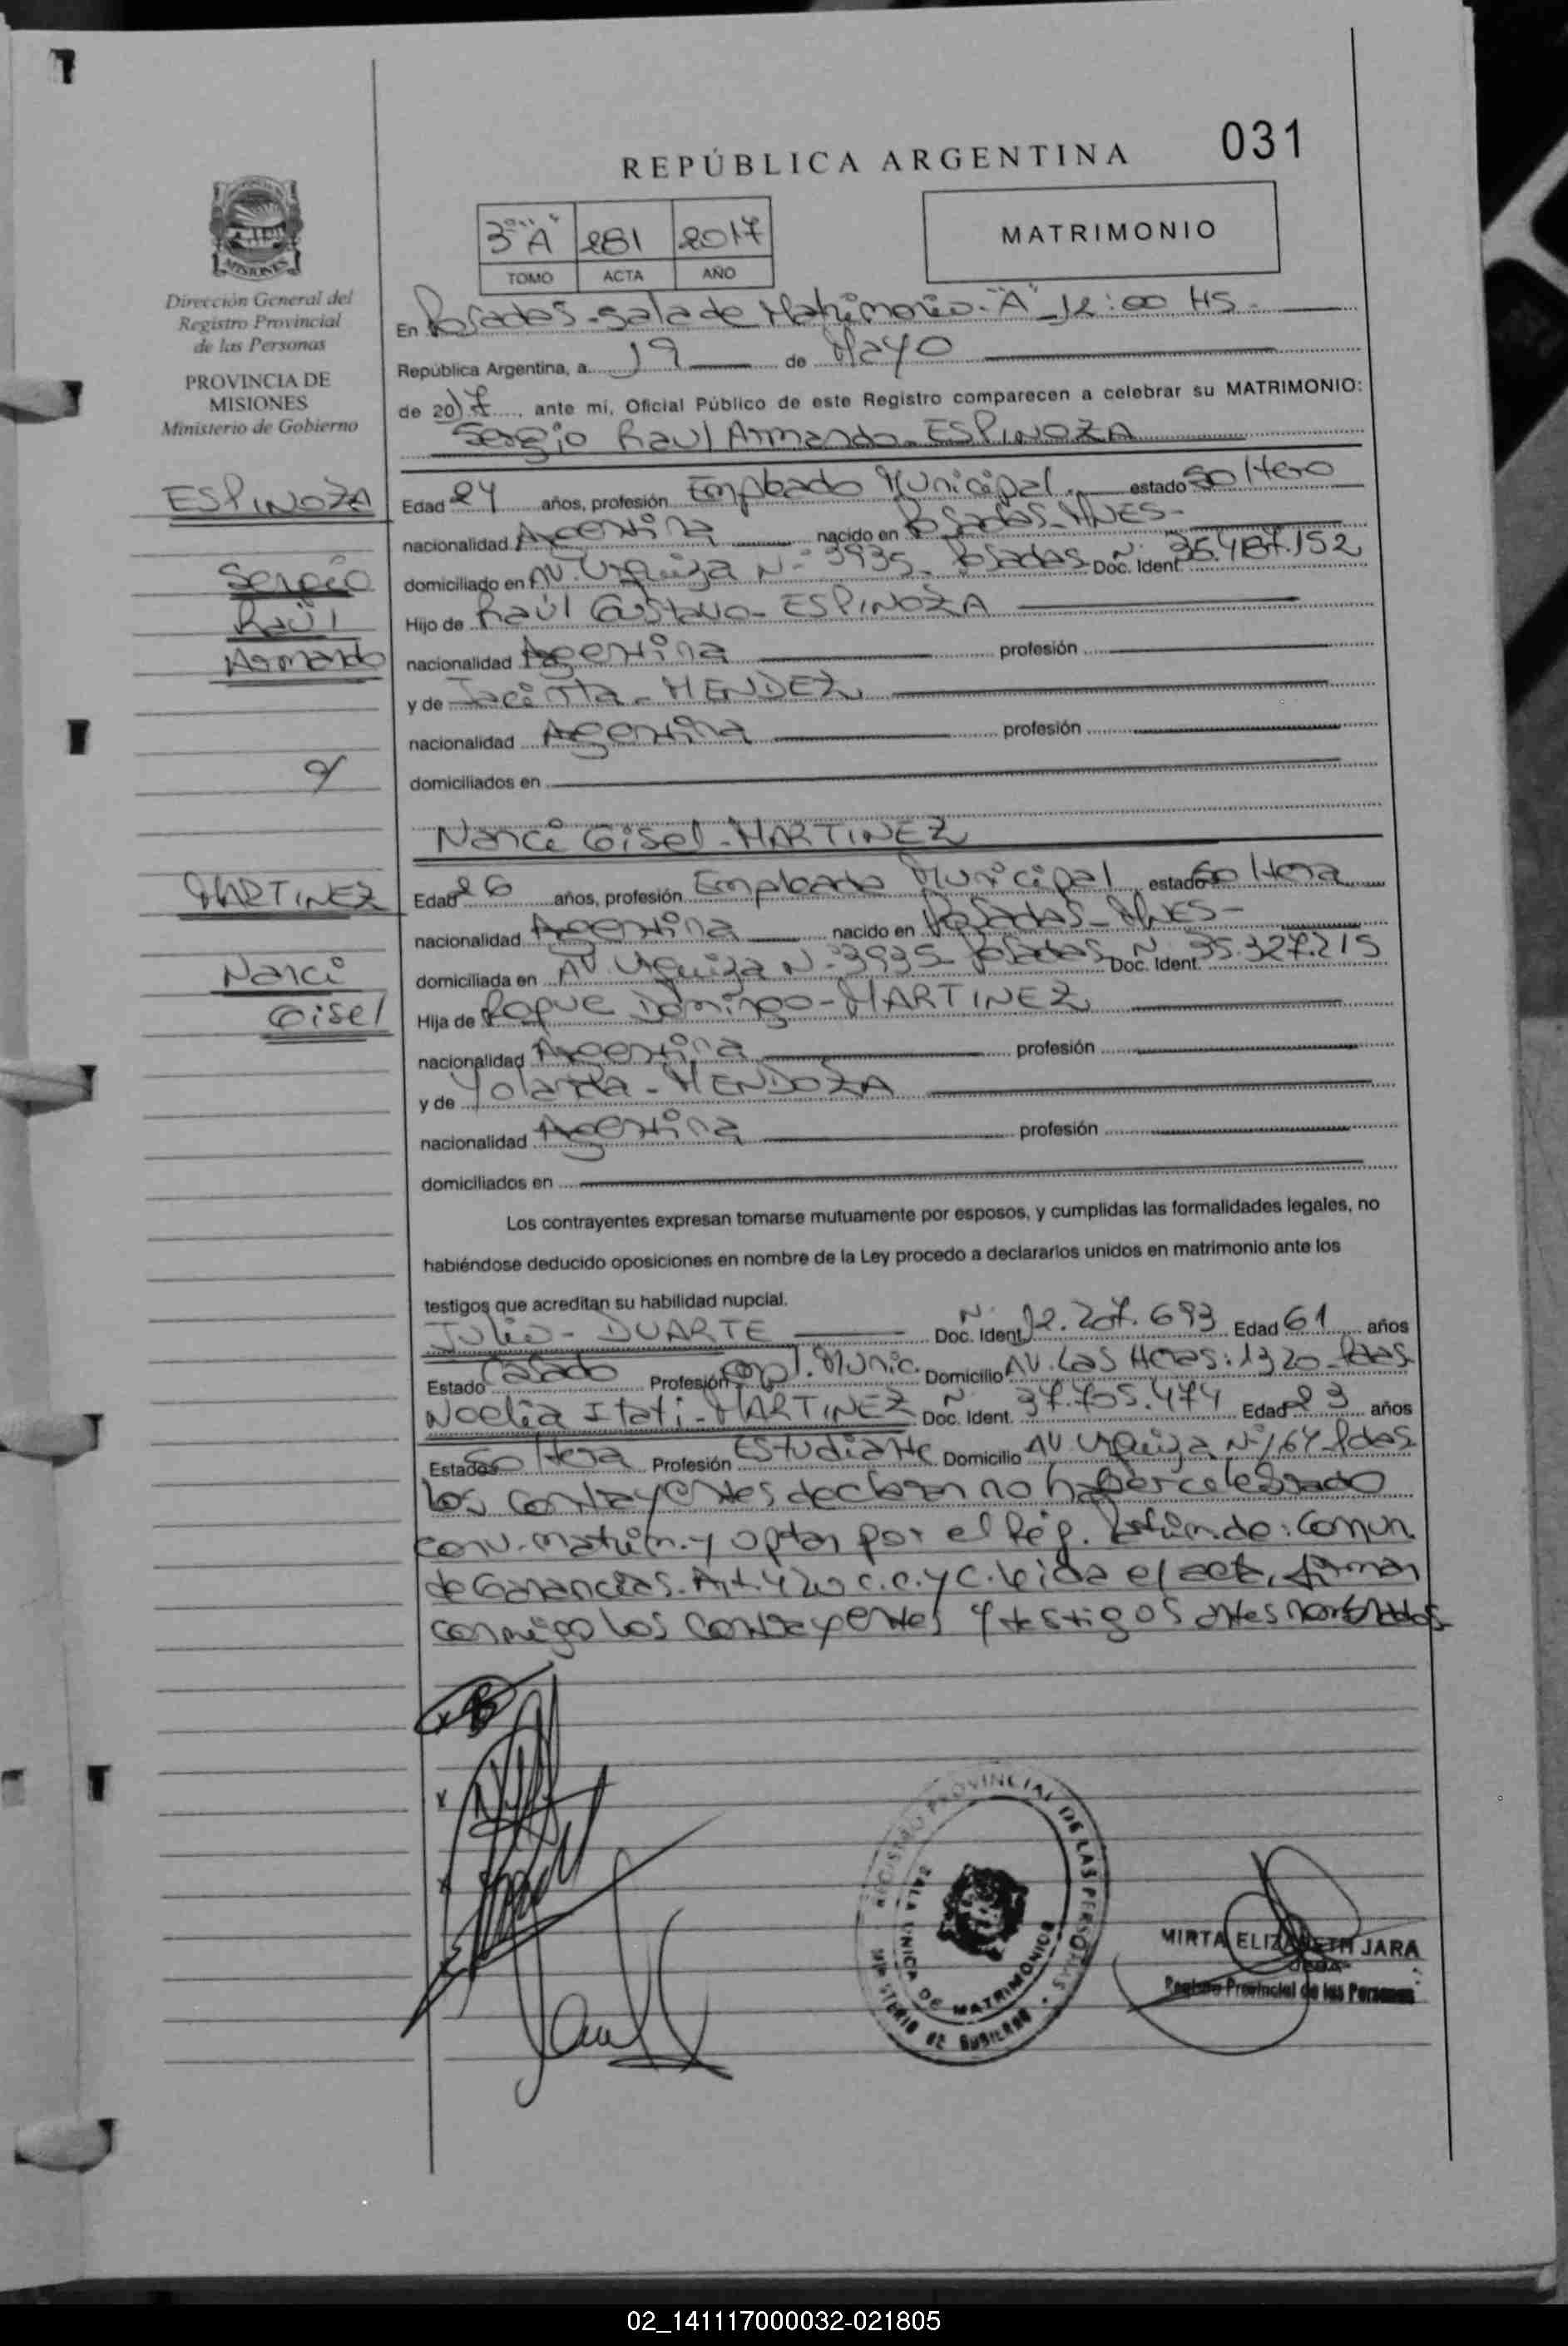 REPÚBLICA ARGENTINA
031
3º "A" 281 2017
TOMO ACTA AÑO
MATRIMONIO
MISIONES
Dirección General del
Registro Provincial
de las Personas
PROVINCIA DE
MISIONES
Ministerio de Gobierno
En Posadas-Sala de Matrimonio-"A" 12:00 HS-
República Argentina, a 19 de Mayo
de 2017, ante mi, Oficial Público de este Registro comparecen a celebrar su MATRIMONIO:
Sergio Raul Armando-ESPINOZA
ESPINOZA
Sergio
Raúl
Armando
Edad 24 años, profesión Empleado Municipal estado Soltero
nacionalidad Argentina nacido en Posadas-MNES-
domiciliado en AV. Urquiza N° 3935- Posadas Doc. Ident. N° 35.487.152
Hijo de Raúl Gustavo-ESPINOZA
nacionalidad Argentina profesión
y de Jacinta-MENDEZ
nacionalidad Argentina profesión
y
domiciliados en
Nanci Gisel-MARTINEZ
MARTINEZ
Nanci
Gisel
Edad 26 años, profesión Empleada Municipal, estado Soltera
nacionalidad Argentina nacido en Posadas-MNES-
domiciliada en AV. Urquiza N° 3935- Posadas Doc. Ident. N° 35.327.215
Hija de Roque Domingo-MARTINEZ
nacionalidad Argentina profesión
y de Yolanda-MENDOZA
nacionalidad Argentina profesión
domiciliados en
Los contrayentes expresan tomarse mutuamente por esposos, y cumplidas las formalidades legales, no
habiéndose deducido oposiciones en nombre de la Ley procedo a declararlos unidos en matrimonio ante los
testigos que acreditan su habilidad nupcial.
Julio-DUARTE Doc. Ident. N° 12.207.693 Edad 61 años
Estado Casado Profesión Empl. Munic. Domicilio AV. Las Heras: 1320-Pdas
Noelia Itati-MARTINEZ Doc. Ident. N° 37.705.474 Edad 23 años
Estado Soltera Profesión Estudiante Domicilio AV. Urquiza N° 164 Pdas
Los contrayentes declaran no haber celebrado
conv. matrim. y optan por el Rég. Patrim. de: Comun.
de Ganancias. Art. 420 C.C. y C. Leida el acta, firman
conmigo los contrayentes y testigos antes nombrados
REGISTRO PROVINCIAL DE LAS PERSONAS
SALA UNICA DE MATRIMONIOS
MINISTERIO DE GOBIERNO
MIRTA ELIZABETH JARA
JEFA
Registro Provincial de las Personas
02_141117000032-021805